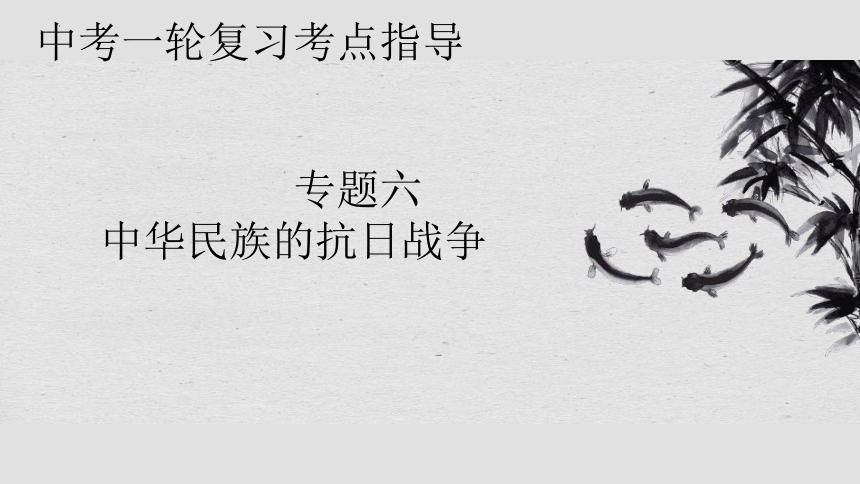 中考一轮复习考点指导
专题六
中华民族的抗日战争